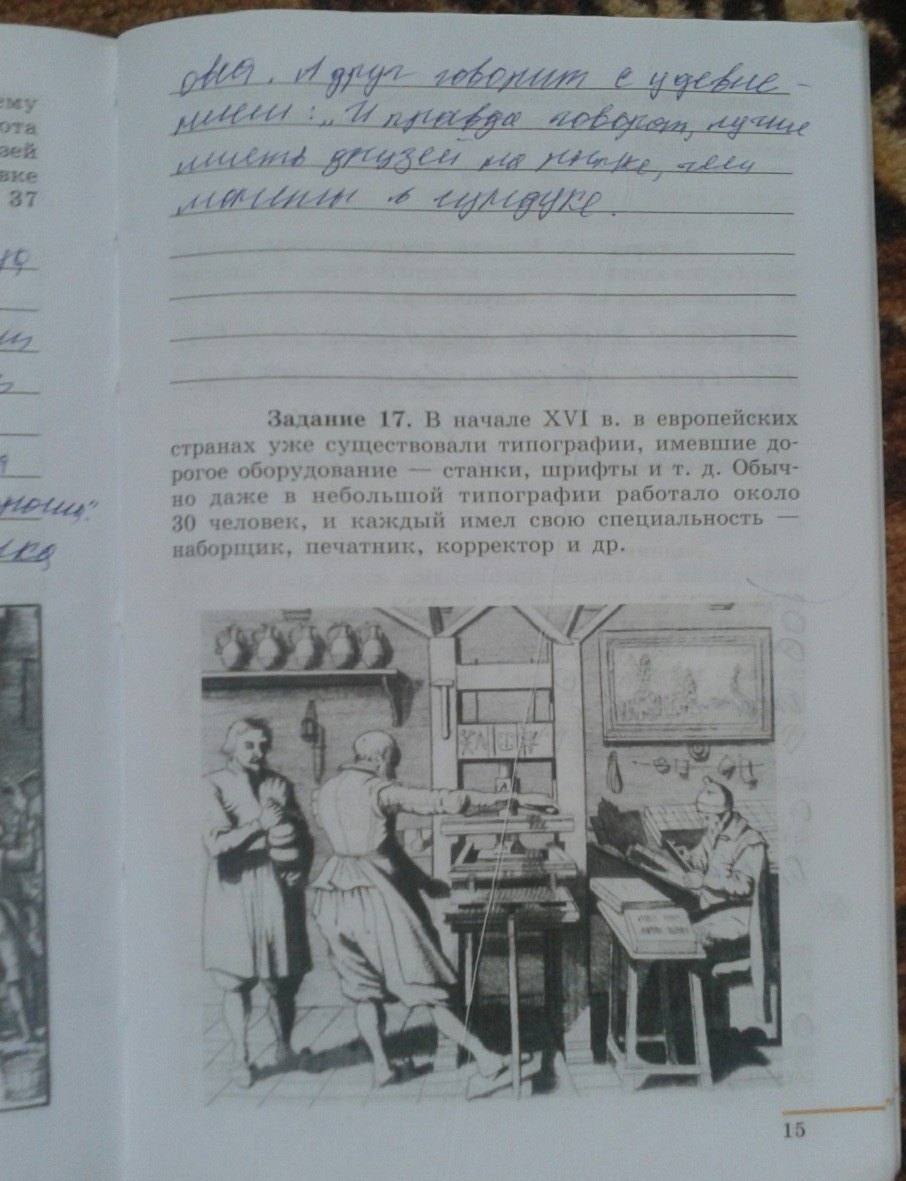 ему
ота
зей
вке
37
она. А друг говорит с удевле-
нием: „И правда говорят, лучше
иметь друзей на рынке, чем
монеты в сундуке.
Задание 17. В начале XVI в. в европейских
странах уже существовали типографии, имевшие до-
рогое оборудование — станки, шрифты и т. д. Обыч-
но даже в небольшой типографии работало около
30 человек, и каждый имел свою специальность —
наборщик, печатник, корректор и др.
15